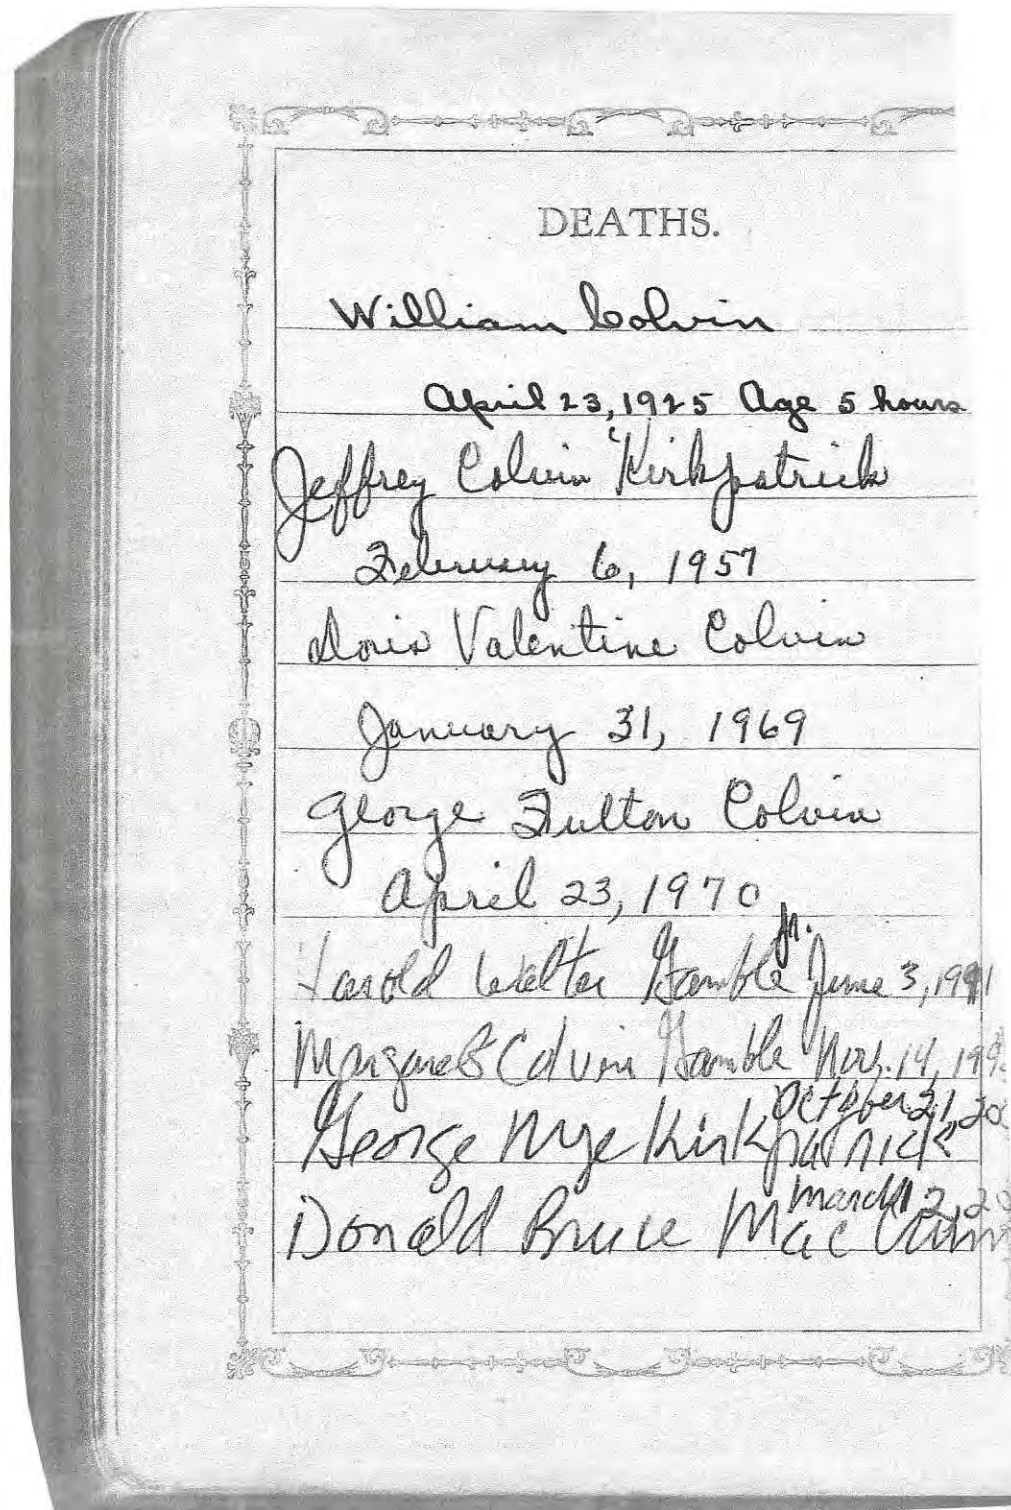 DEATHS.
William Colvin
April 23, 1925 Age 5 hours
Jeffrey Colvin Kirkpatrick
February 6, 1957
Doris Valentine Colvin
January 31, 1969
George Fulton Colvin
April 23, 1970
Harold Walter Gamble Jr. June 3, 1991
Margaret Colvin Gamble Nov. 14, 199
October 21, 20
George Nye Kirkpatrick
March 2, 20
Donald Bruce Mac